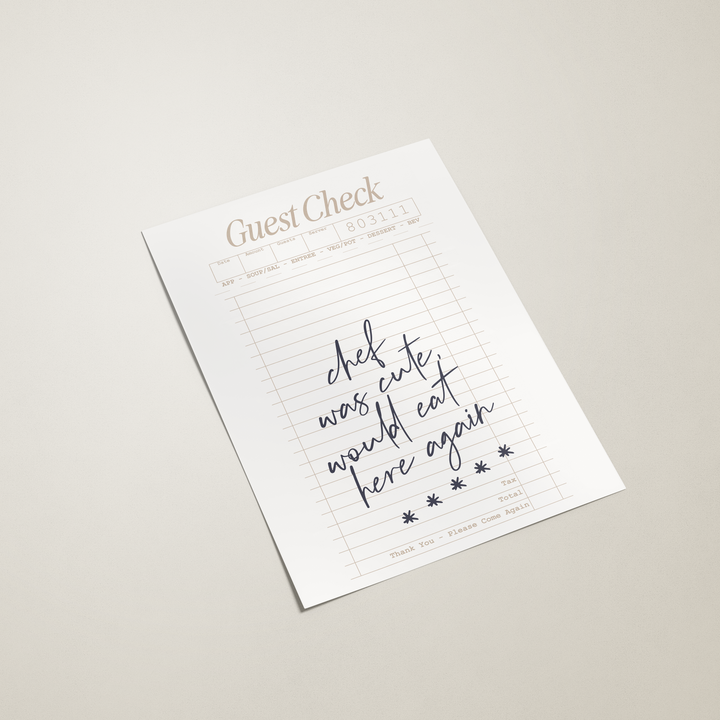 Guest Check
803111
APP - SOUP/SAL - ENTREE - VEG/POT - DESSERT - BEV
chef
was cute,
would eat
here again
* * * * *
Tax
Total
Thank You - Please Come Again